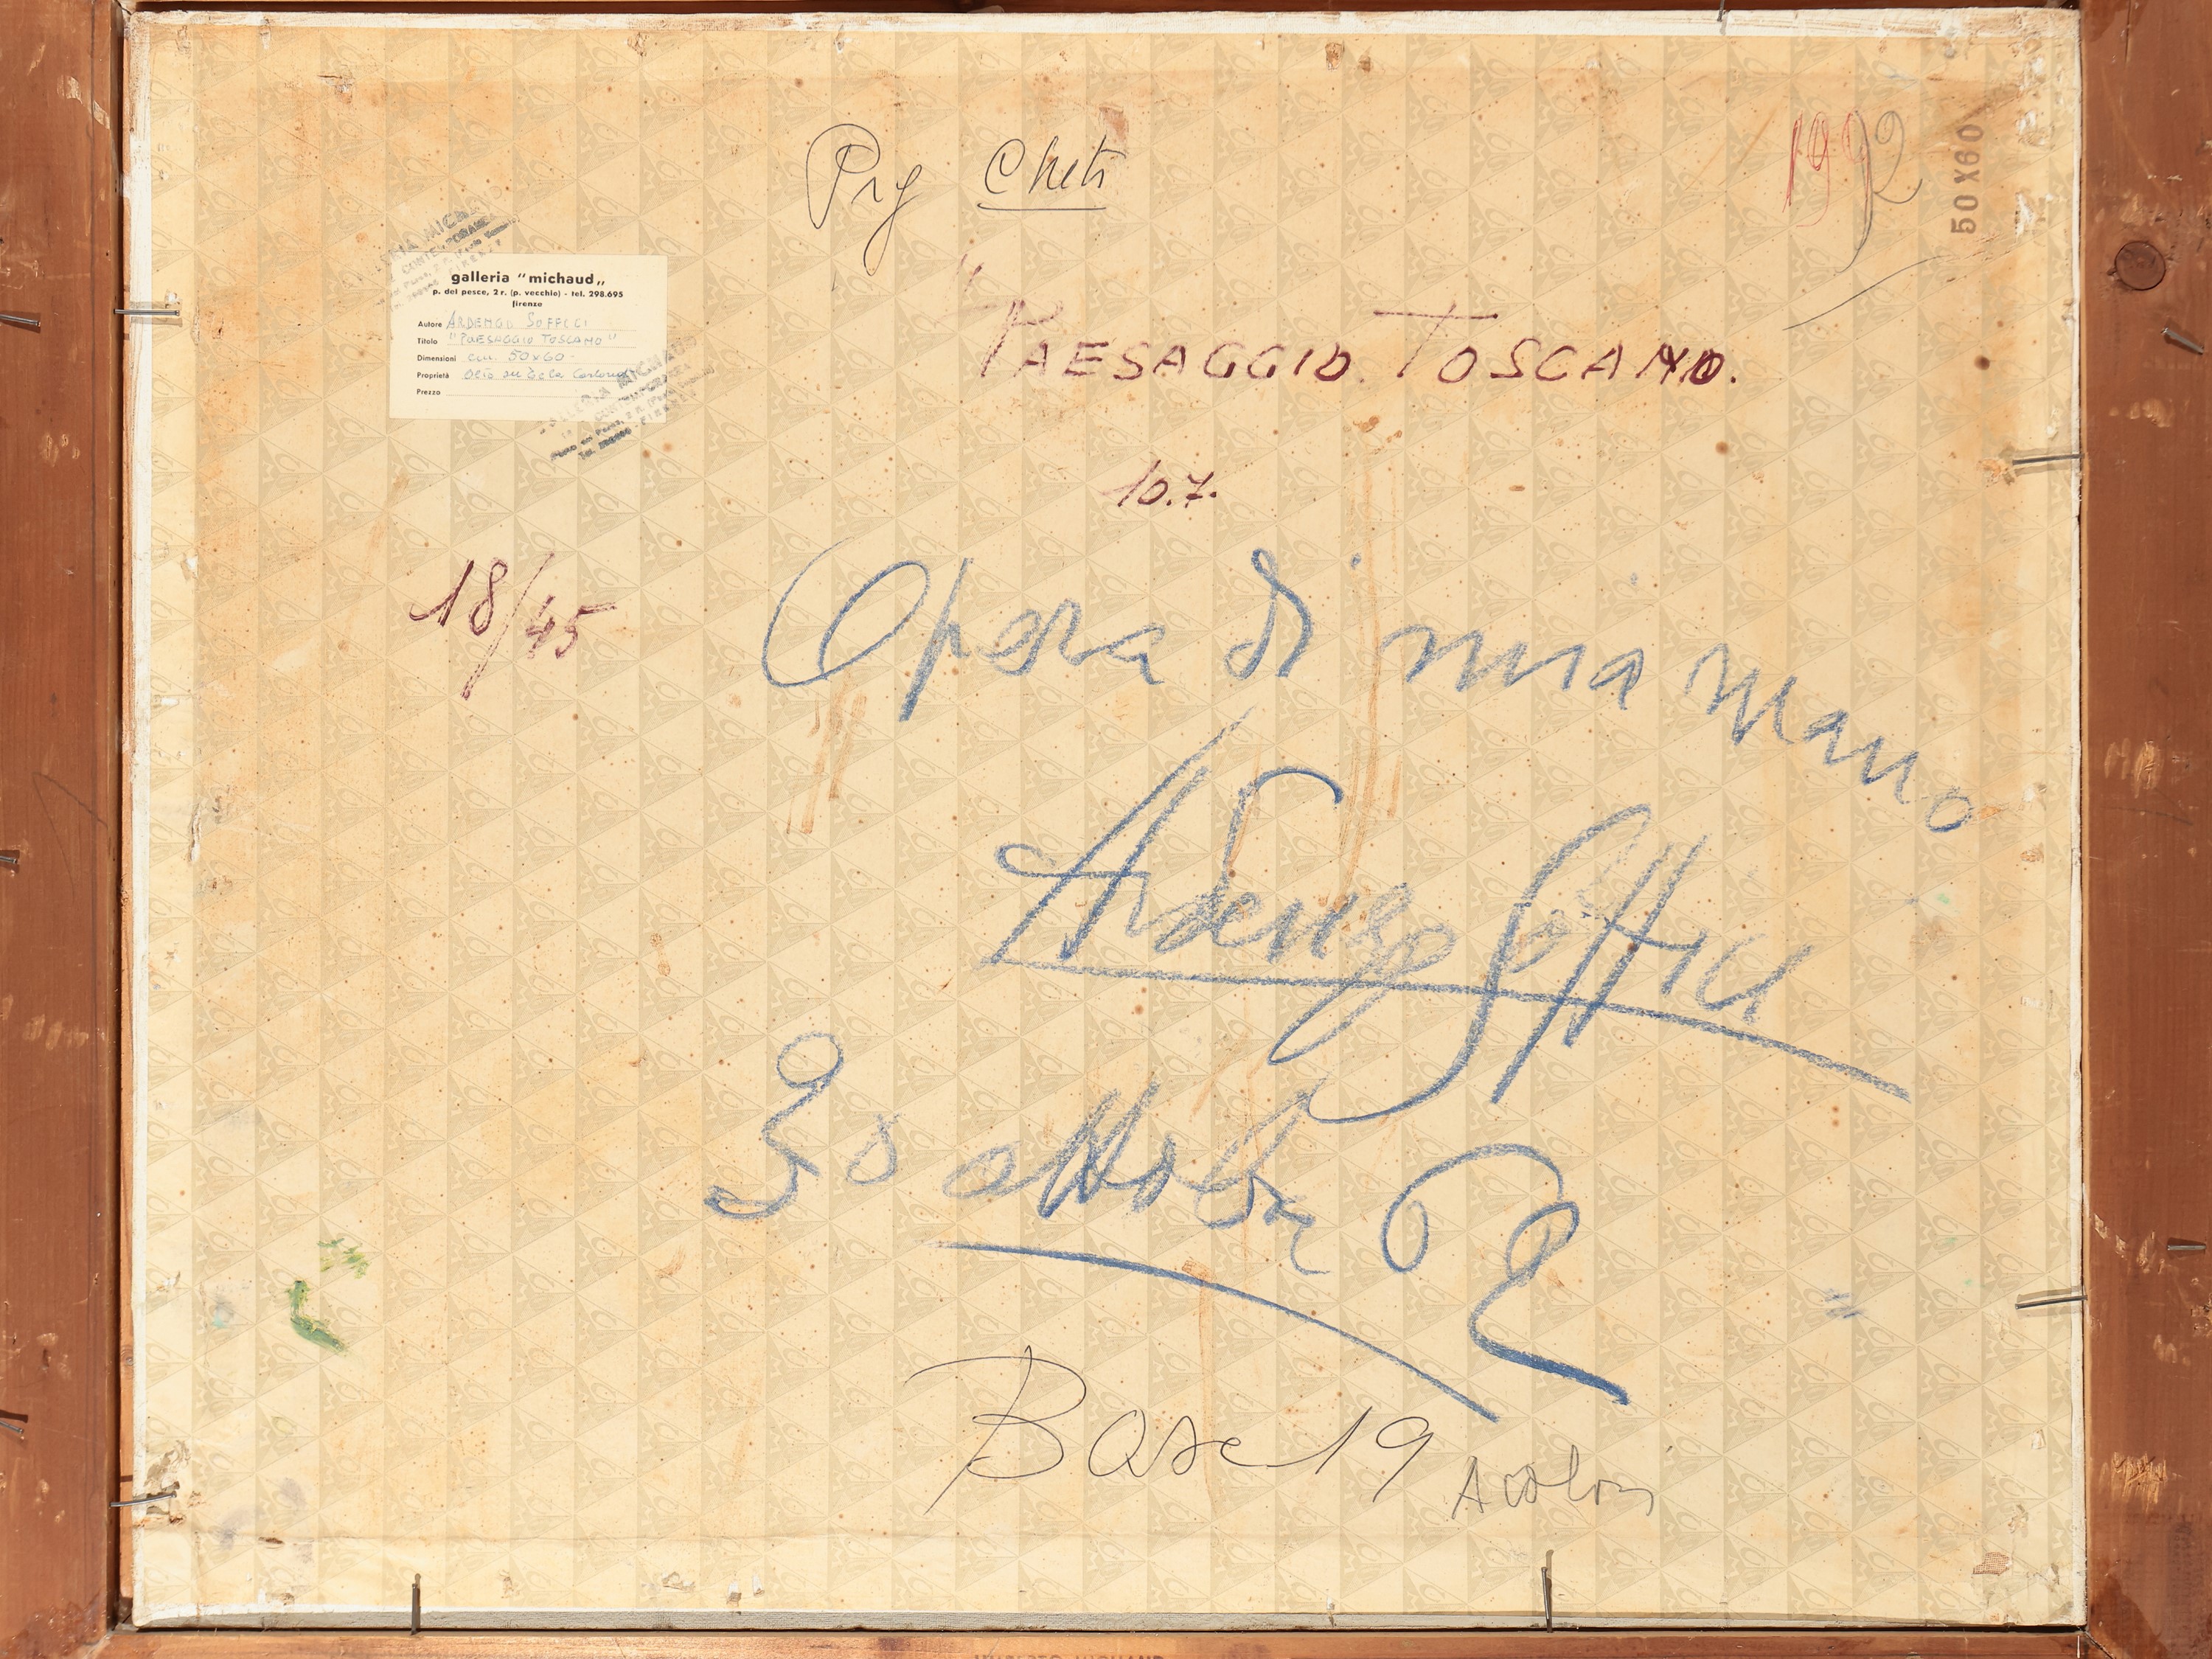 Prg Cheti
1992
50X60
galleria "michaud„
p. del pesce, 2 r. (p. vecchio) - tel. 298.695
firenze
Autore ARDENGO SOFFICI
Titolo "PAESAGGIO TOSCANO"
Dimensioni cm. 50x60-
Proprietà Olio su tela cartonata
Prezzo
"PAESAGGIO. TOSCANO.
10.7.
18/45
Opera di mia mano
Ardengo Soffici
30 ottobre 62
Base 19
UMBERTO MICHAUD